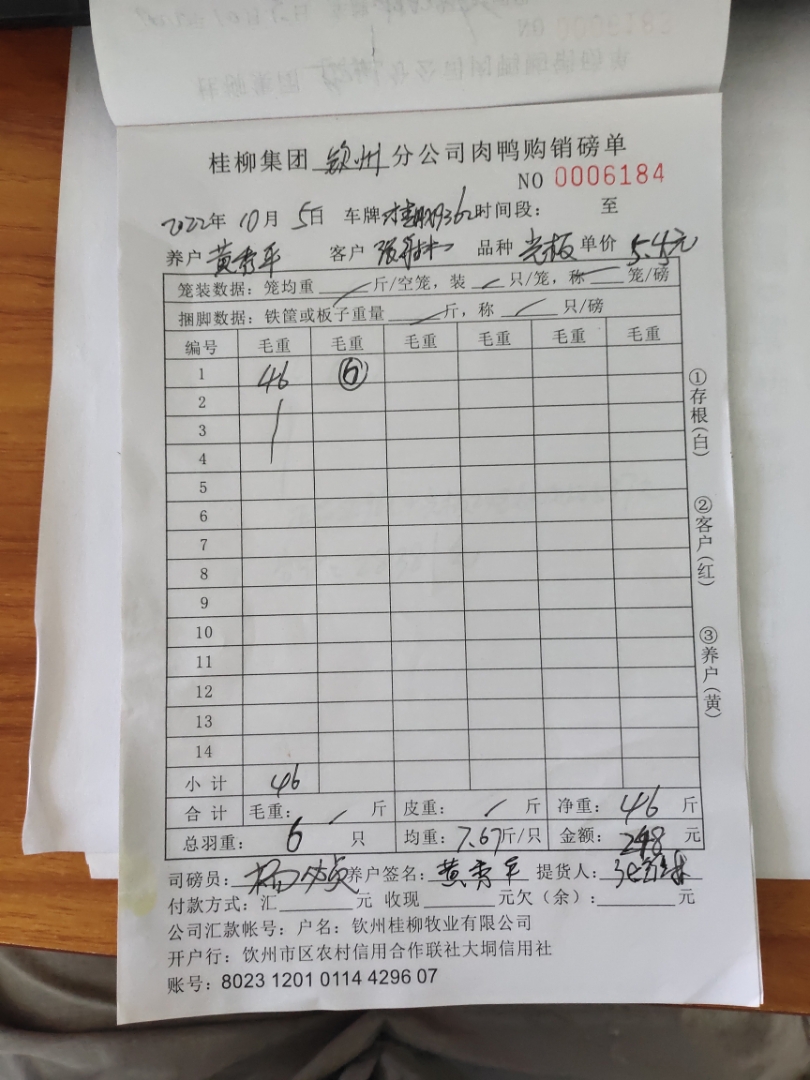 桂柳集团 钦州 分公司肉鸭购销磅单
NO 0006184
2022年 10月 5日 车牌 时间段： 至
养户 黄秀平 客户 品种 光板 单价 5.4元
笼装数据：笼均重 / 斤/空笼，装 / 只/笼，称 / 笼/磅
捆脚数据：铁筐或板子重量 / 斤，称 / 只/磅
编号 毛重 毛重 毛重 毛重 毛重 毛重
1 46 ⑥
2
3
4
5
6
7
8
9
10
11
12
13
14
小 计 46
合 计 毛重： / 斤 皮重： / 斤 净重： 46 斤
总羽重： 6 只 均重：7.67斤/只 金额： 248 元
司磅员： 养户签名：黄秀平 提货人：
付款方式：汇 元 收现 元欠（余）： 元
公司汇款帐号：户名：钦州桂柳牧业有限公司
开户行：钦州市区农村信用合作联社大垌信用社
账号：8023 1201 0114 4296 07
①存根（白）
②客户（红）
③养户（黄）